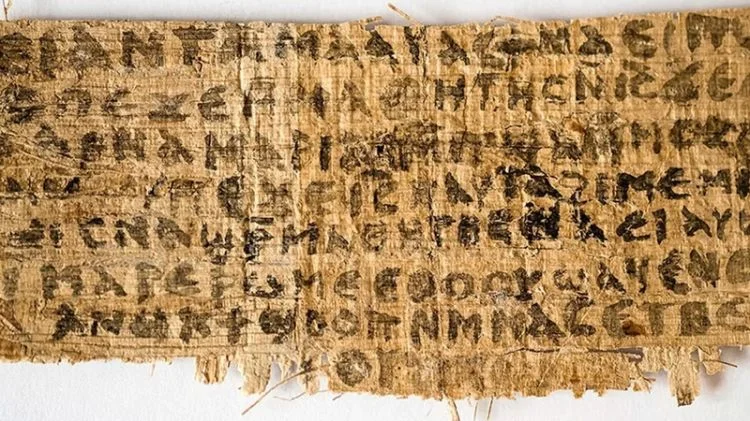 ⲉⲓ ⲁⲛ ⲧⲁⲙⲁⲁⲩ ⲁⲥϯ ⲛⲁⲉⲓ
ⲡⲉϫⲉ ⲙⲙⲁⲑⲏⲧⲏⲥ ⲛⲓⲥ ϫⲉ
ⲁⲣⲛⲁ ⲙⲁⲣⲓⲁⲙ
ⲡⲉϫⲉ ⲓⲥ ⲛⲁⲩ ⲧⲁϩⲓⲙⲉ ⲙⲛ
ⲥⲛⲁϣⲣⲙⲁⲑⲏⲧⲏⲥ ⲛⲁⲉⲓ ⲁⲩⲱ
ⲙⲁⲣⲉⲣⲱⲙⲉ ⲉⲑⲟⲟⲩ ϣⲁϥⲉⲛⲉ
ⲁⲛⲟⲕ ϯϣⲟⲟⲡ ⲛⲙⲙⲁⲥ ⲉⲧⲃⲉ